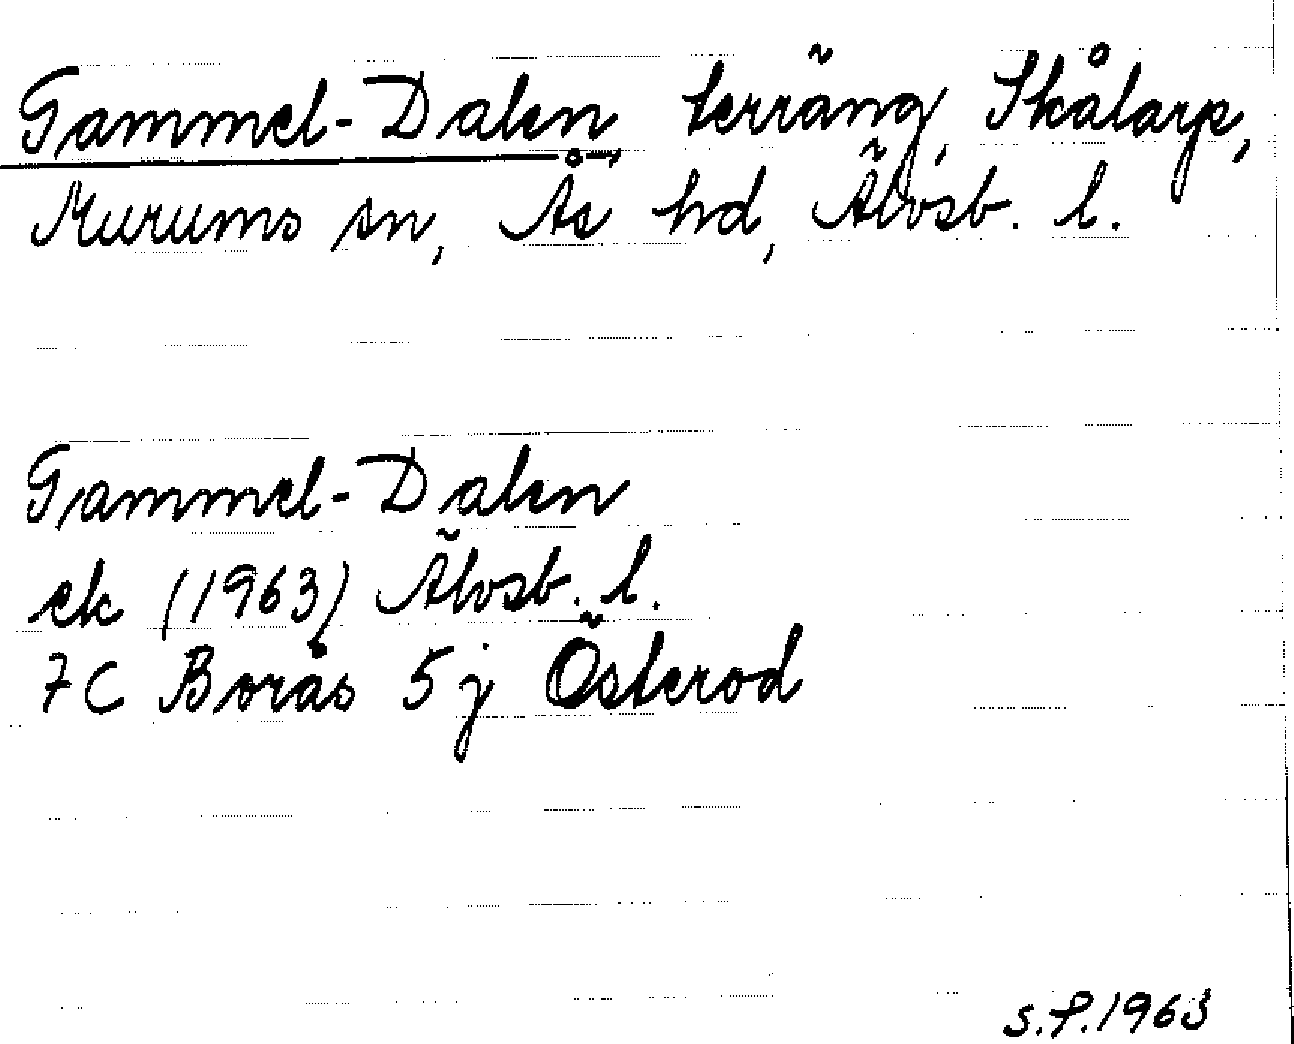 Gammel-Dalen terräng, Skålarp,
Murums sn, Ås hd, Älvsb. l.
Gammel-Dalen
ek (1963) Älvsb. l.
7C Borås 5j Österod
S.P. 1963